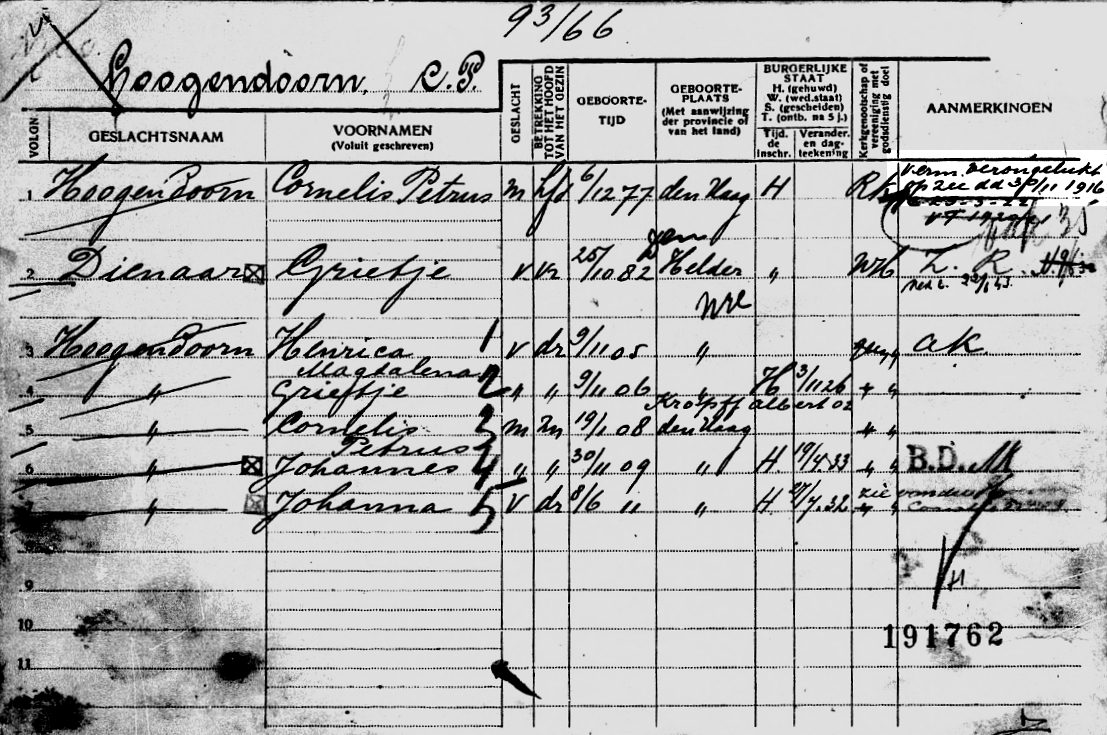 93/66
Hoogendoorn, C.P.
VOLGN
GESLACHTSNAAM
VOORNAMEN
(Voluit geschreven)
GESLACHT
BETREKKING TOT HET HOOFD VAN HET GEZIN
GEBOORTE-
TIJD
GEBOORTE-
PLAATS
(Met aanwijzing
der provincie of
van het land)
BURGERLIJKE
STAAT
H. (gehuwd)
W. (wed.staat)
S. (gescheiden)
T. (ontb. na 5 j.)
Tijd. de inschr.
Verander. en dag-teekening
Kerkgenootschap of vereeniging met godsdienstig doel
AANMERKINGEN
1 Hoogendoorn Cornelis Petrus m hfd 6/12 77 den Haag H RK Verm. verongelukt
op zee dd 30/11 1916
2 Dienaar Grietje v vr 25/10 82 den Helder " NH Z. R.
3 Hoogendoorn Henrica v dr 9/11 05 " " ak
Magdalena
4 " Grietje " " 9/11 06 " H 3/11 26 " "
Kropff Albert 02
5 " Cornelis m zn 19/1 08 den Haag " "
Petrus
6 " Johannes " " 30/11 09 " H 19/4 33 " " B.D.
7 " Johanna v dr 8/6 11 " H 27/4.32 " " zie
9
10
11
191762